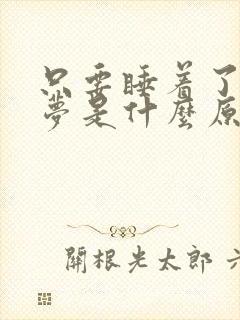 只要睡着了
夢是什麼原
開根光太郎 六